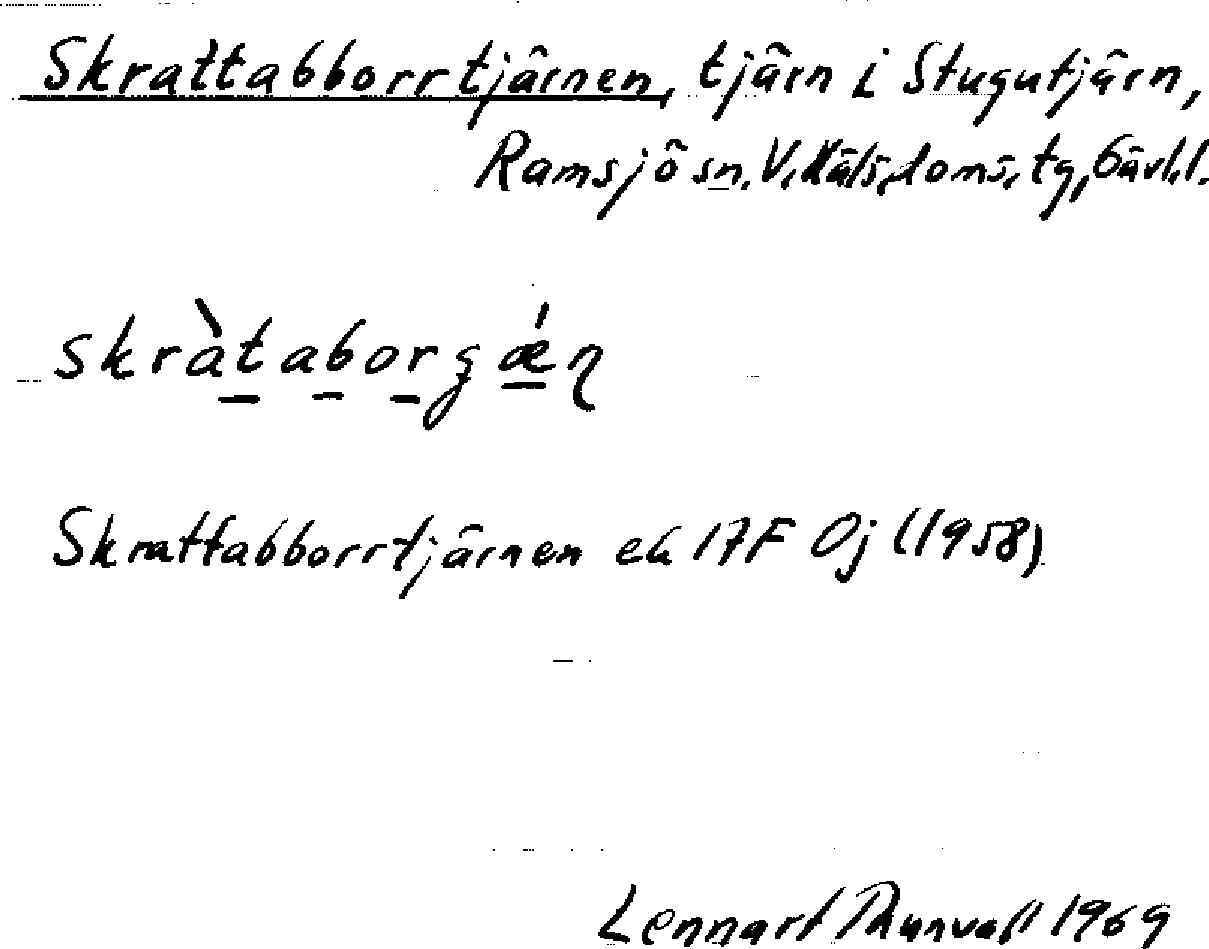 Skrattabborrtjärnen, tjärn i Stugutjärn,
Ramsjö sn, V. Häls. doms. tg, Gävl. l.
skràtaborʒǽn
Skrattabborrtjärnen ek 17F 0j (1958)
Lennart Thunvall 1969